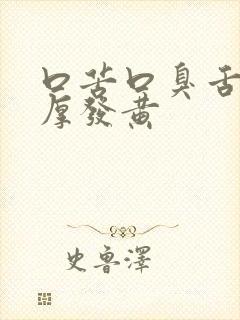 口苦口臭舌
厚發黃
史魯澤